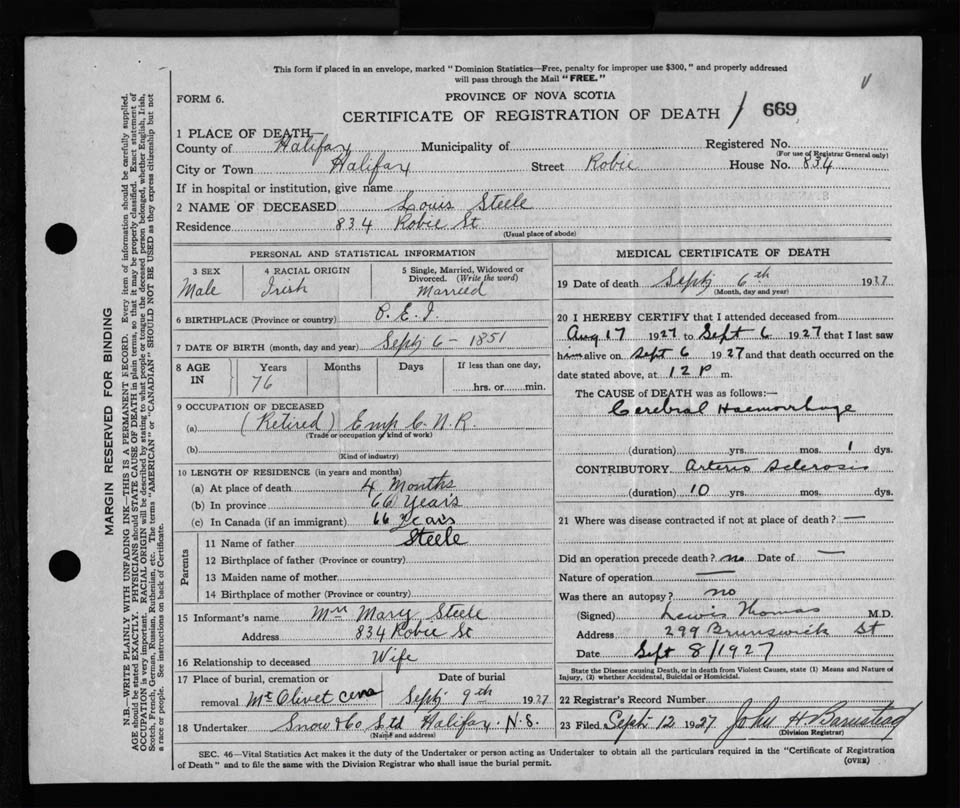 This form if placed in an envelope, marked "Dominion Statistics—Free, penalty for improper use $300," and properly addressed
will pass through the Mail "FREE."
FORM 6.
PROVINCE OF NOVA SCOTIA
CERTIFICATE OF REGISTRATION OF DEATH / 669
1 PLACE OF DEATH—
County of Halifax Municipality of Registered No.
(For use of Registrar General only)
City or Town Halifax Street Robie House No. 834
If in hospital or institution, give name
2 NAME OF DECEASED Louis Steele
Residence 834 Robie St
(Usual place of abode)
PERSONAL AND STATISTICAL INFORMATION
3 SEX 4 RACIAL ORIGIN 5 Single, Married, Widowed or Divorced. (Write the word)
Male Irish Married
6 BIRTHPLACE (Province or country) P. E. I.
7 DATE OF BIRTH (month, day and year) Sept 6 - 1851
8 AGE IN Years Months Days If less than one day,
76 hrs. or min.
9 OCCUPATION OF DECEASED
(a) (Retired) Emp C. N. R.
(Trade or occupation or kind of work)
(b)
(Kind of industry)
10 LENGTH OF RESIDENCE (in years and months)
(a) At place of death 4 Months
(b) In province 66 Years
(c) In Canada (if an immigrant) 66 Years
Parents
11 Name of father Steele
12 Birthplace of father (Province or country)
13 Maiden name of mother
14 Birthplace of mother (Province or country)
15 Informant's name Mrs Mary Steele
Address 834 Robie St
16 Relationship to deceased Wife
17 Place of burial, cremation or Date of burial
removal Mt Olivet Cem Sept 9th 1927
18 Undertaker Snow & Co Ltd Halifax. N.S.
(Name and address)
MEDICAL CERTIFICATE OF DEATH
19 Date of death Sept 6th 1927
(Month, day and year)
20 I HEREBY CERTIFY that I attended deceased from
Aug 17 1927 to Sept 6 1927 that I last saw
him alive on Sept 6 1927 and that death occurred on the
date stated above, at 12 P m.
The CAUSE of DEATH was as follows:—
Cerebral Haemorrhage
(duration) yrs. mos. 1 dys.
CONTRIBUTORY Arterio Sclerosis
(duration) 10 yrs. mos. dys.
21 Where was disease contracted if not at place of death? —
Did an operation precede death? no Date of —
Nature of operation —
Was there an autopsy? no
(Signed) Lewis Thomas M.D.
Address 299 Brunswick St
Date Sept 8/1927
State the Disease causing Death, or in death from Violent Causes, state (1) Means and Nature of
Injury, (2) whether Accidental, Suicidal or Homicidal.
22 Registrar's Record Number
23 Filed Sept 12 1927 John H Barnstead
(Division Registrar)
SEC. 46—Vital Statistics Act makes it the duty of the Undertaker or person acting as Undertaker to obtain all the particulars required in the "Certificate of Registration
of Death" and to file the same with the Division Registrar who shall issue the burial permit.
(OVER)
MARGIN RESERVED FOR BINDING
N.B.—WRITE PLAINLY WITH UNFADING INK—THIS IS A PERMANENT RECORD. Every item of information should be carefully supplied.
AGE should be stated EXACTLY. PHYSICIANS should STATE CAUSE OF DEATH in plain terms, so that it may be properly classified. Exact statement of
OCCUPATION is very important. RACIAL ORIGIN will be described by stating to what people or tongue the deceased person belonged, whether English, Irish,
Scotch, French, German, Russian, Ruthenian, etc. The terms "AMERICAN" or "CANADIAN" SHOULD NOT BE USED as they express citizenship but not
a race or people. See instructions on back of Certificate.